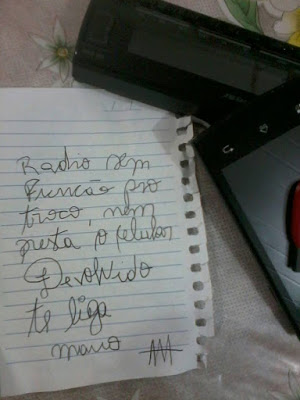 Radio sem
Função pro
troco, nem
presta o celular
Devolvido
te liga
mano